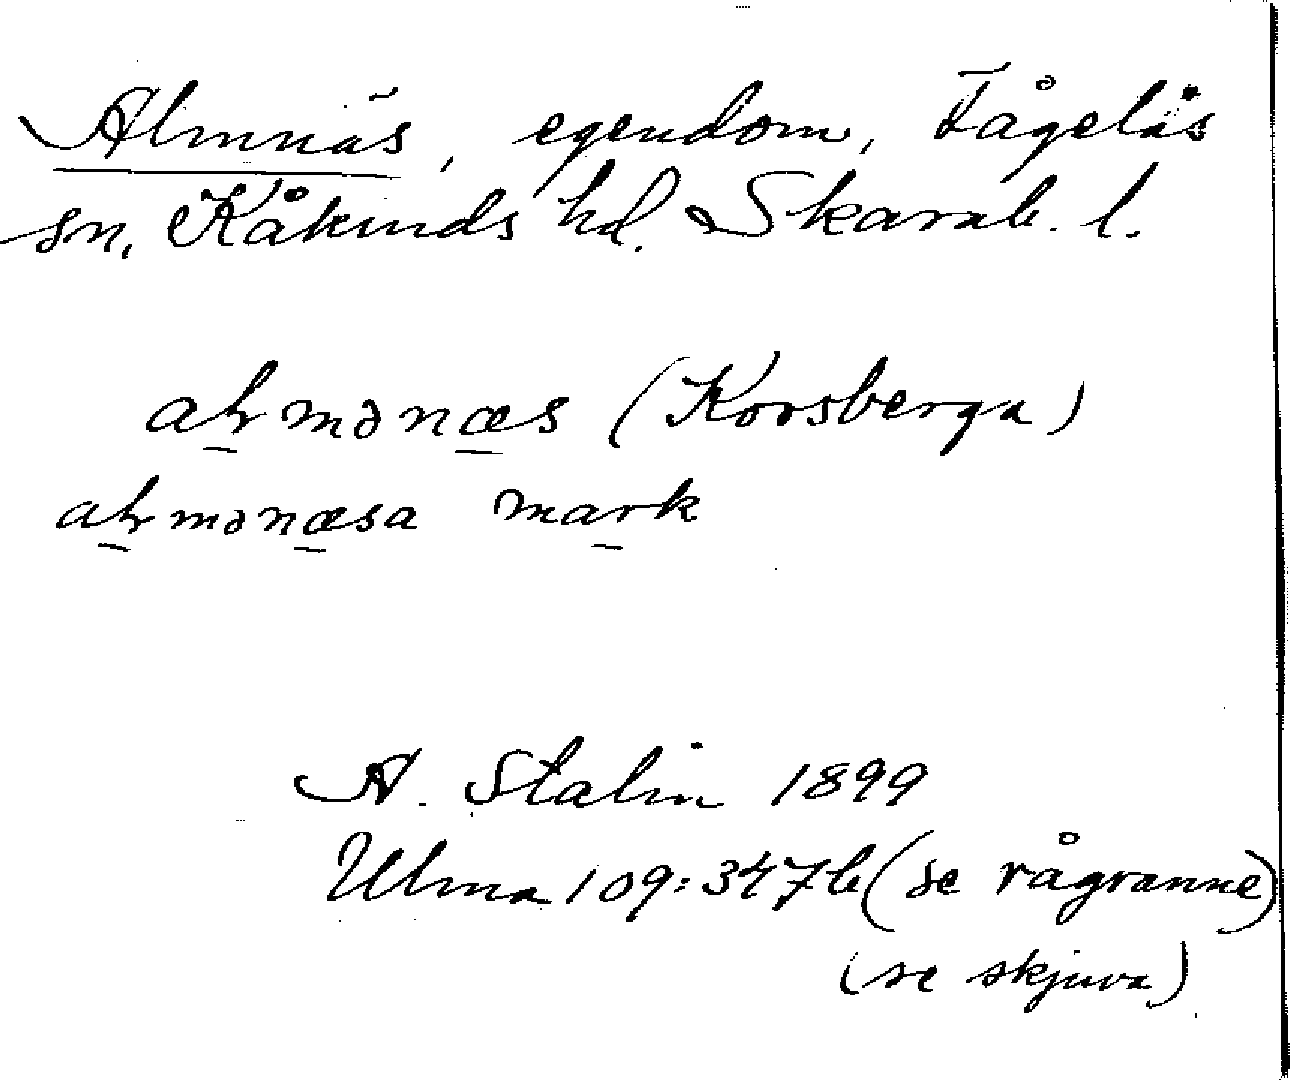 Almnäs, egendom, Fågelås
sn, Kåkinds hd. Skarab. l.
aɬmənæs (Korsberga)
aɬmənæsa mark
A. Stalin 1899
Ulma 109:347b (se rågranne)
(se skjuva)